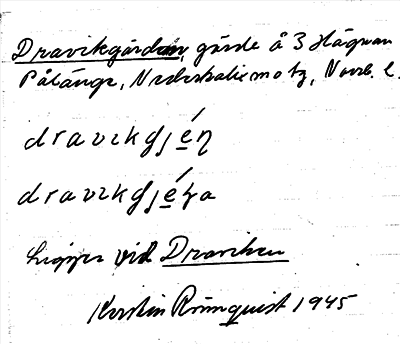 Dravikgärdan, gärde å 3 Hägnan
Pålänge, Nederkalix mo tg, Norrb. l.
dravɩkgjén
dravɩkgjéɳa
Ligger vid Draviken
Kerstin Rönnquist 1945